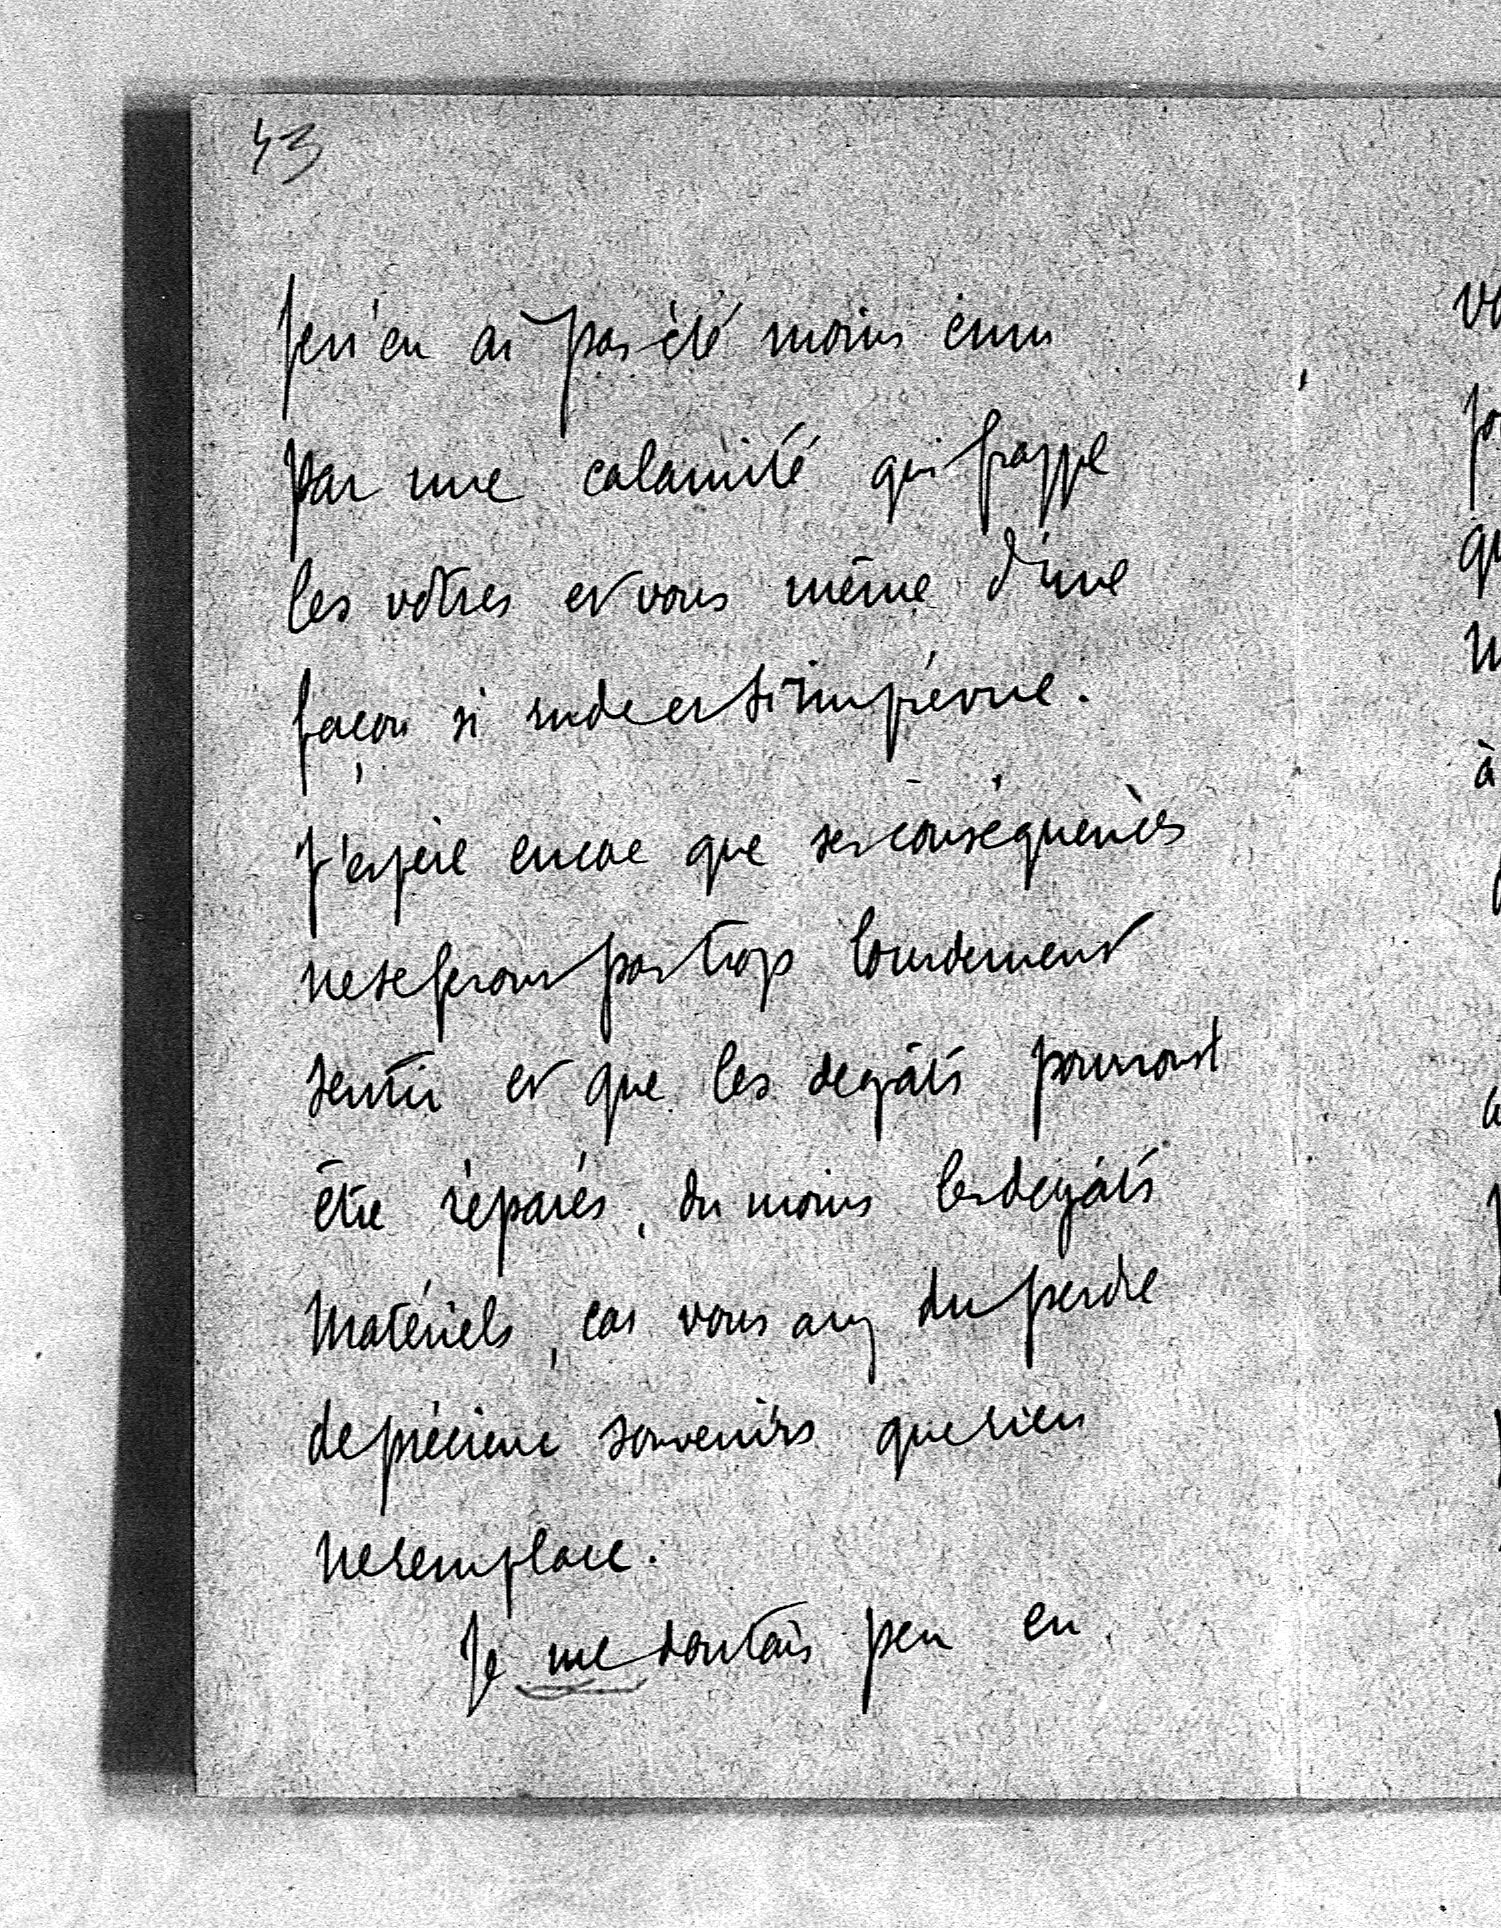 43
Je n'en ai pas été moins ému
par une calamité qui frappe
les vôtres et vous même d'une
façon si rude et si imprévue.
J'espère encore que ses conséquences
ne se feront pas trop lourdement
sentir et que les dégâts pourront
être réparés, du moins les dégâts
matériels, car vous avez du perdre
de précieux souvenirs que rien
ne remplace.
Je me doutais peu en